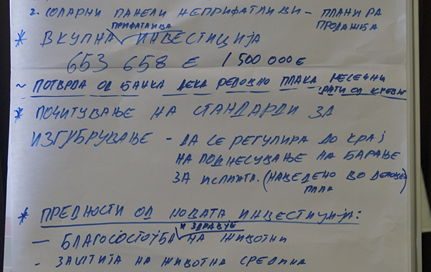 2. СОЛАРНИ ПАНЕЛИ НЕПРИФАТЛИВИ - ПЛАНИРА ПРОДАЖБА
* ВКУПНА ПРИФАТЛИВА ИНВЕСТИЦИЈА
653 658 € 1 500 000 €
~ ПОТВРДА ОД БАНКА ДЕКА РЕДОВНО ПЛАКА МЕСЕЧНИ РАТИ ОД КРЕДИТ
* ПОЧИТУВАЊЕ НА СТАНДАРДИ ЗА
ИЗГУБРУВАЊЕ - ДА СЕ РЕГУЛИРА ДО КРАЈ
НА ПОДНЕСУВАЊЕ НА БАРАЊЕ
ЗА ИСПЛАТА. (НАВЕДЕНО ВО ДЕЛОВЕН ПЛАН
* ПРЕДНОСТИ ОД НОВАТА ИНВЕСТИЦИЈА:
- БЛАГОСОСТОЈБА И ЗДРАВЈЕ НА ЖИВОТНИ
- ЗАШТИТА НА ЖИВОТНА СРЕДИНА